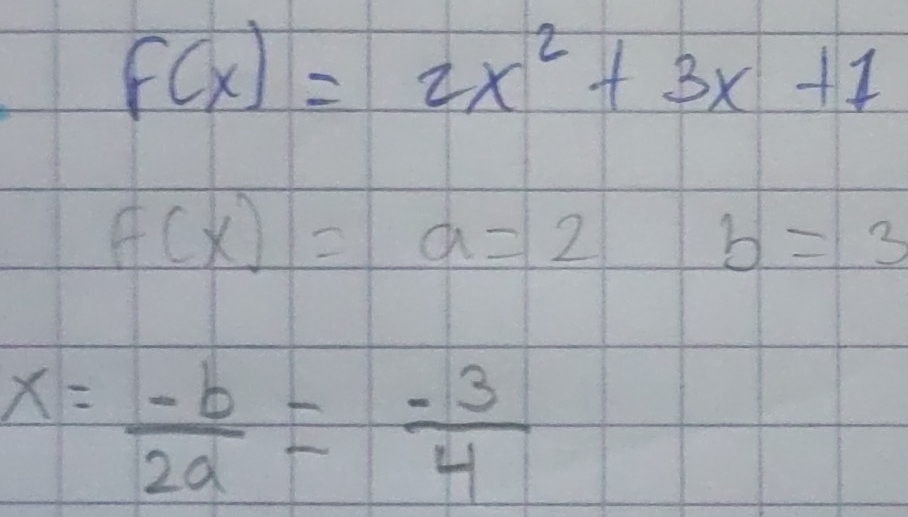 f(x) = 2x² + 3x + 1
f(x) = a = 2 b = 3
x = -b/2a = -3/4